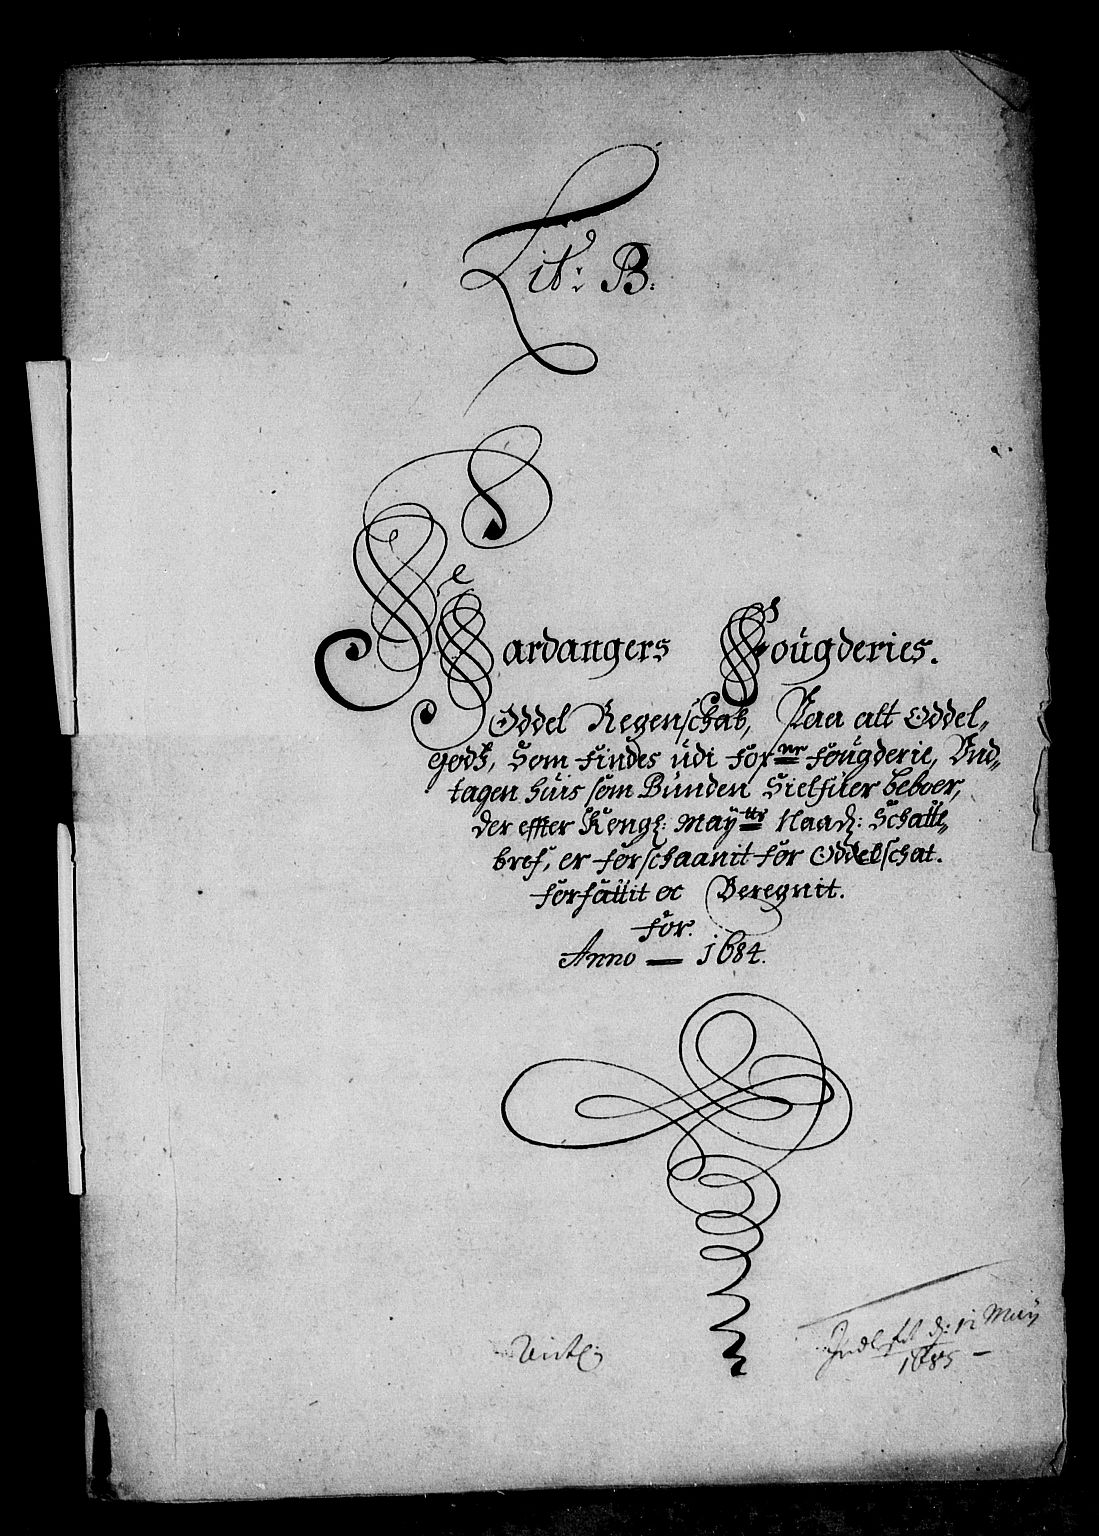 Lit: B.
Hardangers Fougderies.
Oddel Regenschab, Paa alt Oddel,
godß, Som findes udi forne fougderie, Und,
tagen huis som Bunden Sielfuer beboer,
der effter Kongl: Mayttz Naadl: Schatte,
bref, er forschaanit for Oddelschat.
forfattit oc Beregnit.
for.
Anno — 1684.
d: 12 Maij
1685 —